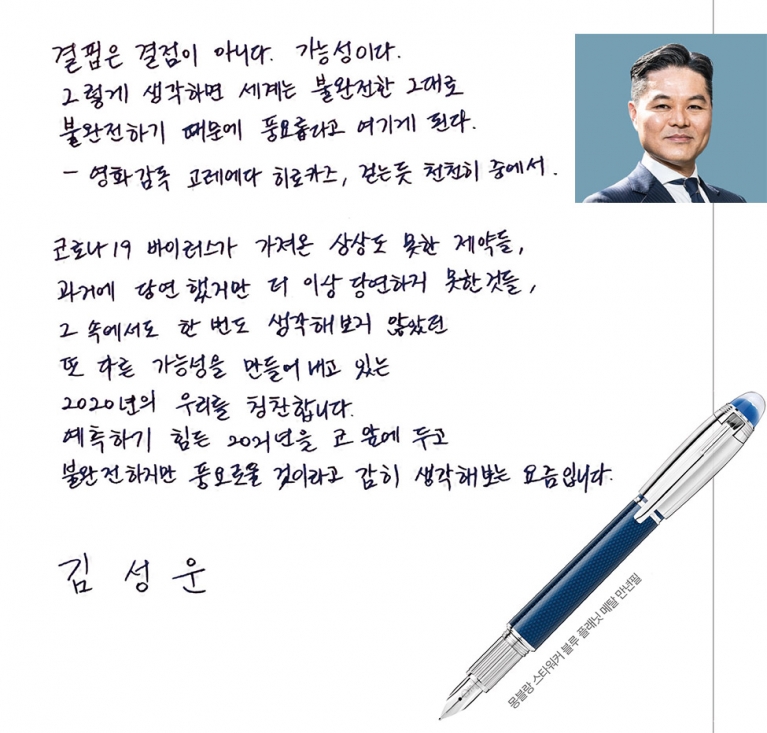 결핍은 결점이 아니다. 가능성이다.
그렇게 생각하면 세계는 불완전한 그대로
불완전하기 때문에 풍요롭다고 여기게 된다.
- 영화감독 고레에다 히로카즈, 걷는듯 천천히 중에서.
코로나19 바이러스가 가져온 상상도 못한 제약들,
과거에 당연했지만 더 이상 당연하지 못한것들,
그 속에서도 한 번도 생각해보지 않았던
또 다른 가능성을 만들어 내고 있는
2020년의 우리를 칭찬합니다.
예측하기 힘든 2021년을 코 앞에 두고
불완전하지만 풍요로울 것이라고 감히 생각해보는 요즘입니다.
김성운
몽블랑 스타워커 블루 플래닛 메탈 만년필